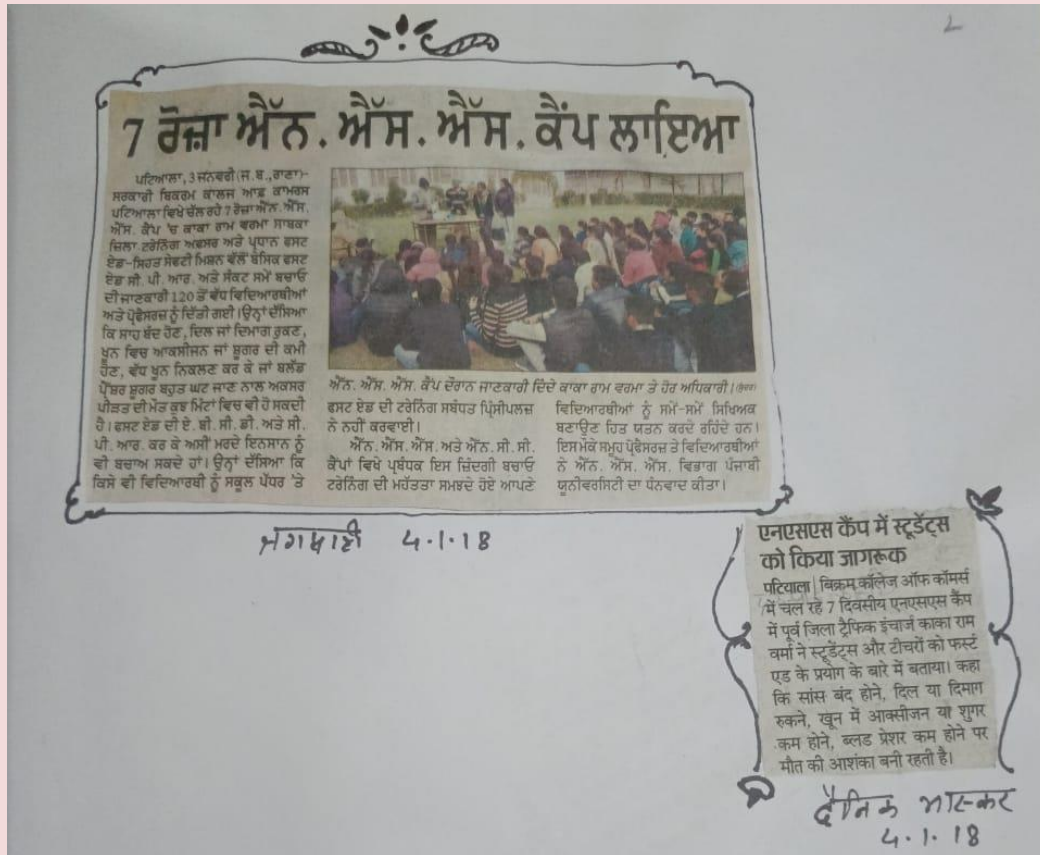 7 ਰੋਜ਼ਾ ਐੱਨ. ਐੱਸ. ਐੱਸ. ਕੈਂਪ ਲਾਇਆ
ਪਟਿਆਲਾ, 3 ਜਨਵਰੀ (ਜ. ਬ., ਰਾਣਾ)-
ਸਰਕਾਰੀ ਬਿਕਰਮ ਕਾਲਜ ਆਫ ਕਾਮਰਸ
ਪਟਿਆਲਾ ਵਿਖੇ ਚੱਲ ਰਹੇ 7 ਰੋਜ਼ਾ ਐੱਨ. ਐੱਸ.
ਐੱਸ. ਕੈਂਪ 'ਚ ਕਾਕਾ ਰਾਮ ਵਰਮਾ ਸਾਬਕਾ
ਜ਼ਿਲਾ ਟਰੇਨਿੰਗ ਅਫਸਰ ਅਤੇ ਪ੍ਰਧਾਨ ਫਸਟ
ਏਡ-ਸਿਹਤ ਸੇਫਟੀ ਮਿਸ਼ਨ ਵੱਲੋਂ ਬੇਸਿਕ ਫਸਟ
ਏਡ ਸੀ. ਪੀ. ਆਰ. ਅਤੇ ਸੰਕਟ ਸਮੇਂ ਬਚਾਓ
ਦੀ ਜਾਣਕਾਰੀ 120 ਤੋਂ ਵੱਧ ਵਿਦਿਆਰਥੀਆਂ
ਅਤੇ ਪ੍ਰੋਫੈਸਰਜ਼ ਨੂੰ ਦਿੱਤੀ ਗਈ। ਉਨ੍ਹਾਂ ਦੱਸਿਆ
ਕਿ ਸਾਹ ਬੰਦ ਹੋਣ, ਦਿਲ ਜਾਂ ਦਿਮਾਗ ਰੁਕਣ,
ਖੂਨ ਵਿਚ ਆਕਸੀਜਨ ਜਾਂ ਸ਼ੂਗਰ ਦੀ ਕਮੀ
ਹੋਣ, ਵੱਧ ਖੂਨ ਨਿਕਲਣ ਕਰ ਕੇ ਜਾਂ ਬਲੱਡ
ਪ੍ਰੈਸ਼ਰ ਸ਼ੂਗਰ ਬਹੁਤ ਘਟ ਜਾਣ ਨਾਲ ਅਕਸਰ
ਪੀੜਤ ਦੀ ਮੌਤ ਕੁਝ ਮਿੰਟਾਂ ਵਿਚ ਵੀ ਹੋ ਸਕਦੀ
ਹੈ। ਫਸਟ ਏਡ ਦੀ ਏ. ਬੀ. ਸੀ. ਡੀ. ਅਤੇ ਸੀ.
ਪੀ. ਆਰ. ਕਰ ਕੇ ਅਸੀਂ ਮਰਦੇ ਇਨਸਾਨ ਨੂੰ
ਵੀ ਬਚਾਅ ਸਕਦੇ ਹਾਂ। ਉਨ੍ਹਾਂ ਦੱਸਿਆ ਕਿ
ਕਿਸੇ ਵੀ ਵਿਦਿਆਰਥੀ ਨੂੰ ਸਕੂਲ ਪੱਧਰ 'ਤੇ
ਐੱਨ. ਐੱਸ. ਐੱਸ. ਕੈਂਪ ਦੌਰਾਨ ਜਾਣਕਾਰੀ ਦਿੰਦੇ ਕਾਕਾ ਰਾਮ ਵਰਮਾ ਤੇ ਹੋਰ ਅਧਿਕਾਰੀ।
ਫਸਟ ਏਡ ਦੀ ਟਰੇਨਿੰਗ ਸਬੰਧਤ ਪ੍ਰਿੰਸੀਪਲਜ਼
ਨੇ ਨਹੀਂ ਕਰਵਾਈ।
ਐੱਨ. ਐੱਸ. ਐੱਸ. ਅਤੇ ਐੱਨ. ਸੀ. ਸੀ.
ਕੈਂਪਾਂ ਵਿਖੇ ਪ੍ਰਬੰਧਕ ਇਸ ਜ਼ਿੰਦਗੀ ਬਚਾਓ
ਟਰੇਨਿੰਗ ਦੀ ਮਹੱਤਤਾ ਸਮਝਦੇ ਹੋਏ ਆਪਣੇ
ਵਿਦਿਆਰਥੀਆਂ ਨੂੰ ਸਮੇਂ-ਸਮੇਂ ਸਿਖਿਅਕ
ਬਣਾਉਣ ਹਿਤ ਯਤਨ ਕਰਦੇ ਰਹਿੰਦੇ ਹਨ।
ਇਸ ਮੌਕੇ ਸਮੂਹ ਪ੍ਰੋਫੈਸਰਜ਼ ਤੇ ਵਿਦਿਆਰਥੀਆਂ
ਨੇ ਐੱਨ. ਐੱਸ. ਐੱਸ. ਵਿਭਾਗ ਪੰਜਾਬੀ
ਯੂਨੀਵਰਸਿਟੀ ਦਾ ਧੰਨਵਾਦ ਕੀਤਾ।
ਜਗਬਾਣੀ 4.1.18
एनएसएस कैंप में स्टूडेंट्स
को किया जागरूक
पटियाला | बिक्रम कॉलेज ऑफ कॉमर्स
में चल रहे 7 दिवसीय एनएसएस कैंप
में पूर्व जिला ट्रैफिक इंचार्ज काका राम
वर्मा ने स्टूडेंट्स और टीचरों को फर्स्ट
एड के प्रयोग के बारे में बताया। कहा
कि सांस बंद होने, दिल या दिमाग
रुकने, खून में आक्सीजन या शुगर
कम होने, ब्लड प्रेशर कम होने पर
मौत की आशंका बनी रहती है।
दैनिक भास्कर
4.1.18